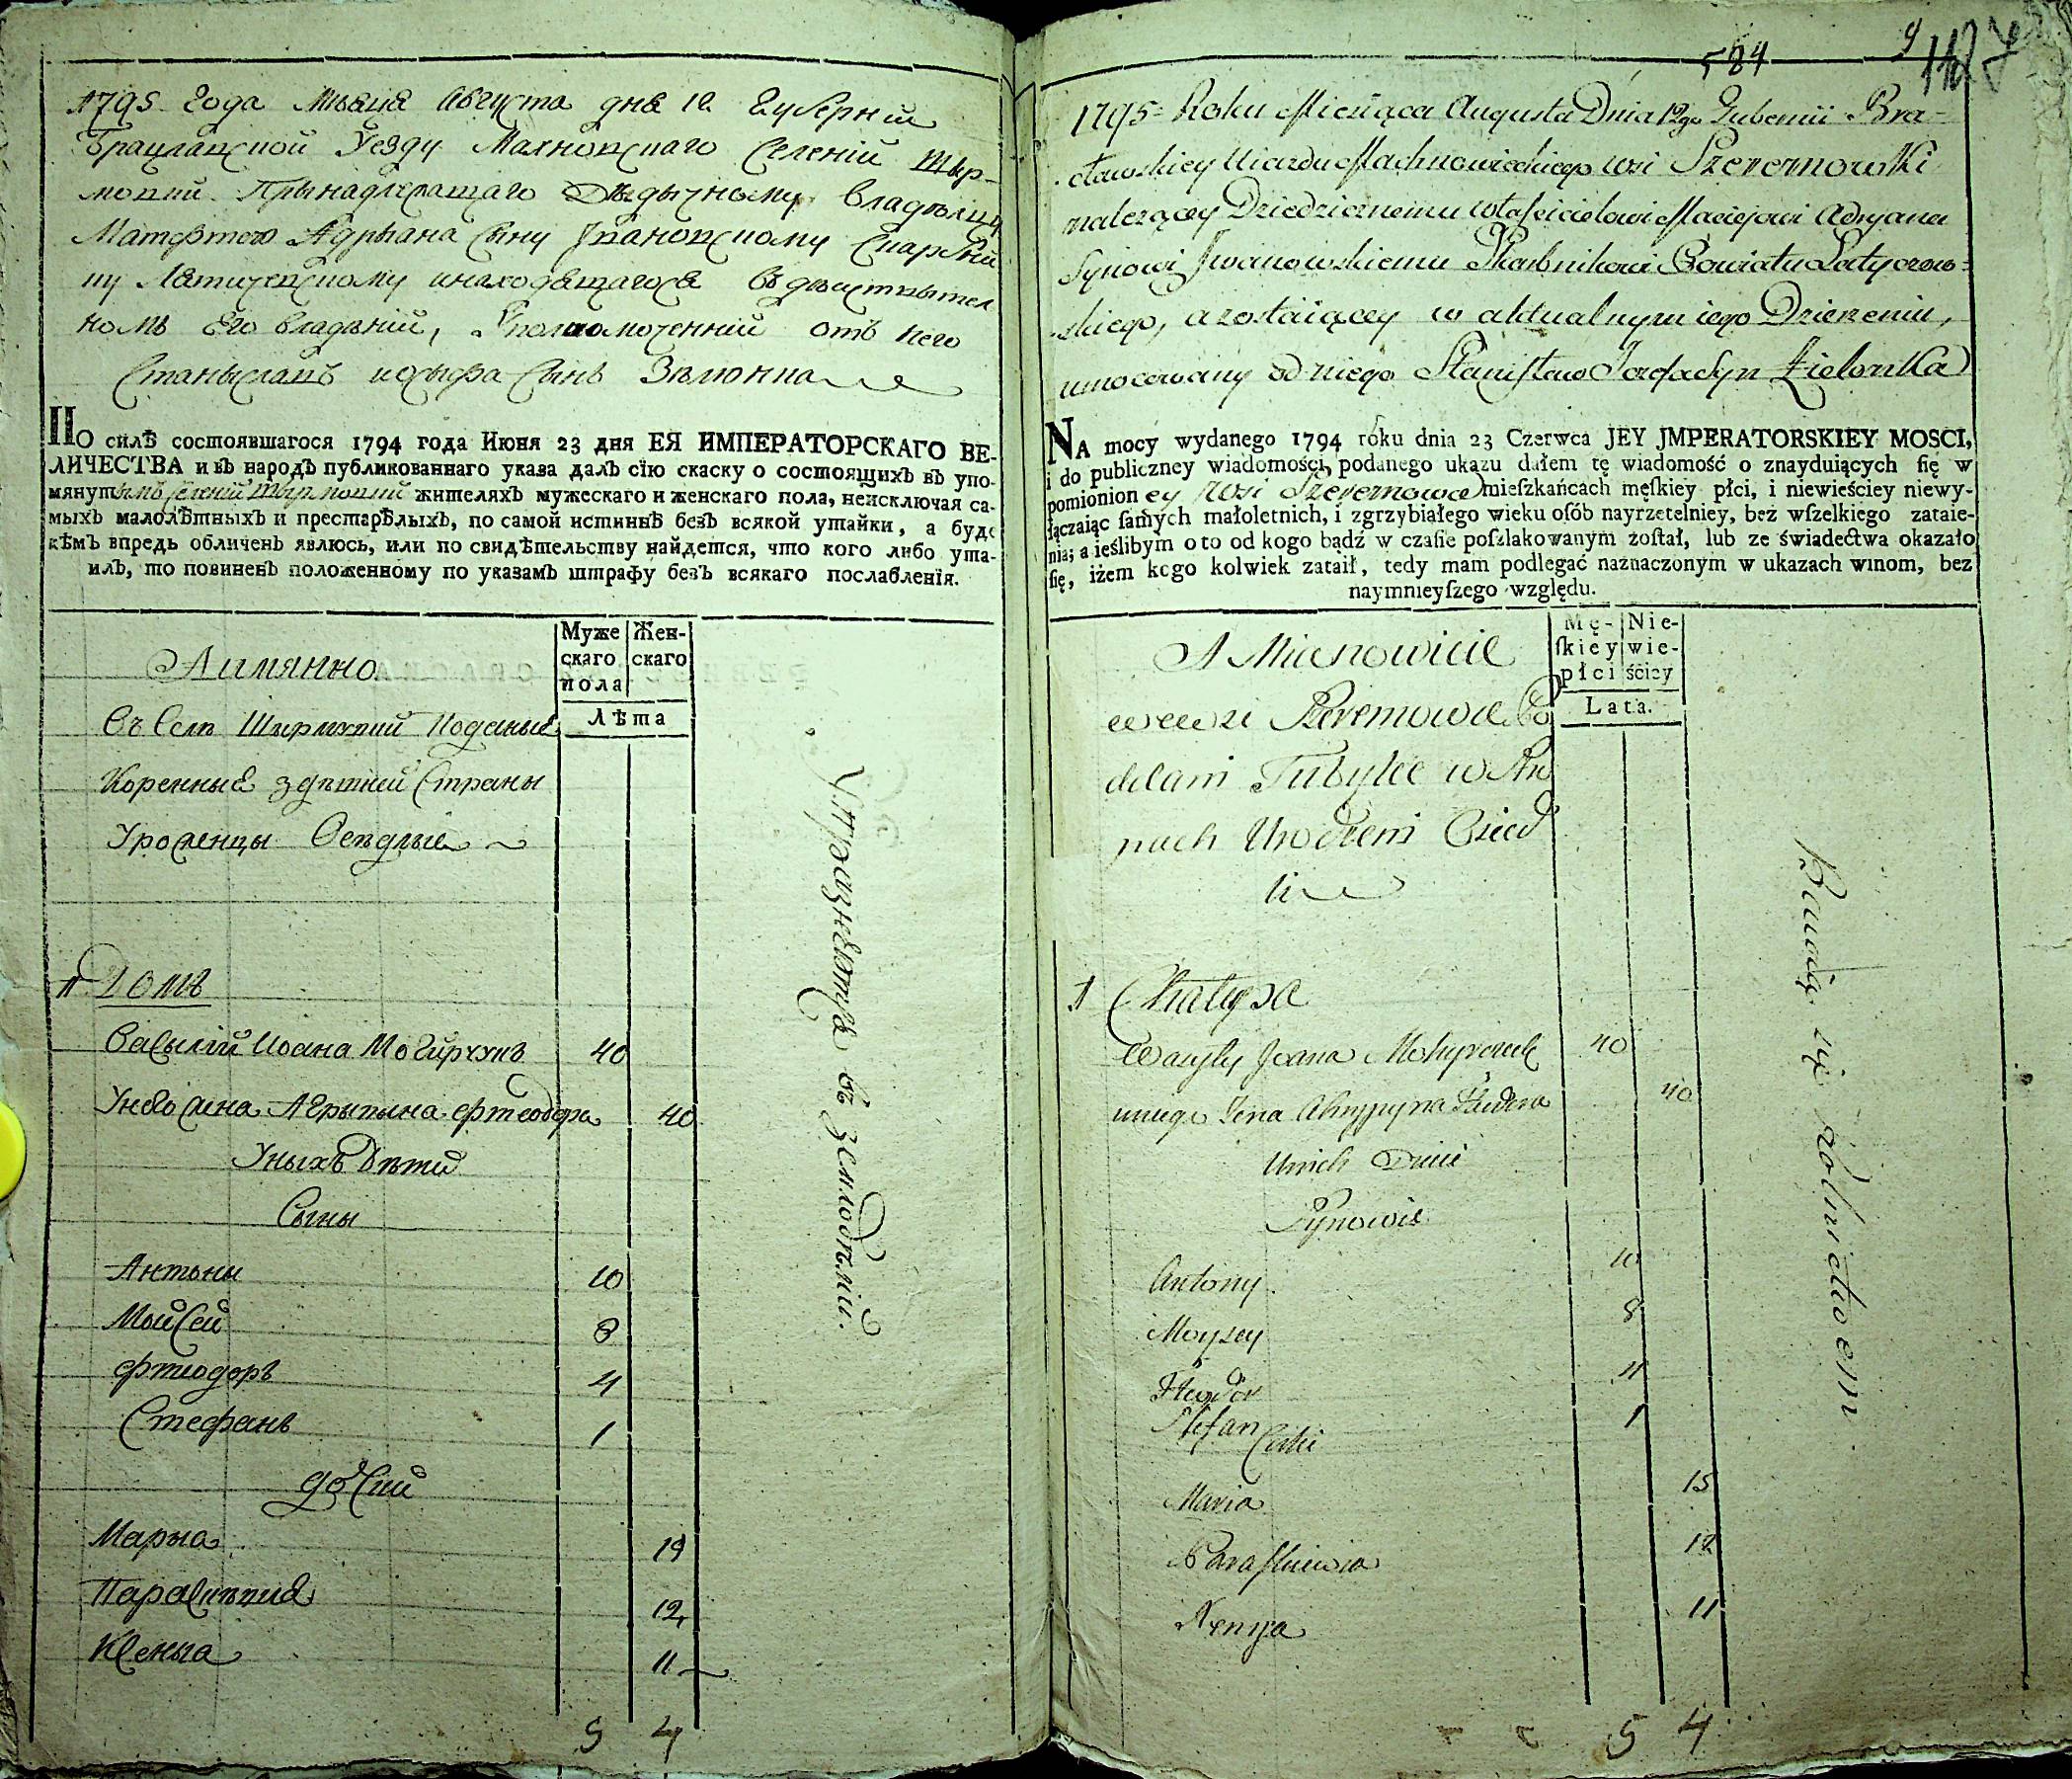 1795 года Мѣсяца Августа дня 12 Губерній
Брацлавской Уезду Махновскаго Селеній Шыр-
мовки Прынадлежащаго Дѣдычному Владѣлцу
Матфѣю Адрыана Сыну Ивановскому Скарбни
ку Лѣтичевскому инаходящагося въ дѣиствытел
номъ Его владѣній, Уполномоченній отъ него
Станыславъ иосыфа Сынъ Зѣлюнка
По силѣ состоявшагося 1794 года Июня 23 дня ЕЯ ИМПЕРАТОРСКАГО ВЕ-
ЛИЧЕСТВА и въ народъ публикованнаго указа далъ сїю скаску о состоящихъ въ упо-
мянутымъ Селеній Шырмовки жителяхъ мужескаго и женскаго пола, неисключая са-
мыхъ малолѣтныхъ и престарѣлыхъ, по самой истиннѣ безъ всякой утайки, а буде
кѣмъ впредь обличенъ явлюсь, или по свидѣтельству найдется, что кого либо ута-
илъ, то повиненъ положенному по указамъ штрафу безъ всякаго послабленїя.
Аимянно
Муже
скаго
пола
Жен-
скаго
Лѣта
Въ Селѣ Шырмувки Поданые
Коренные здѣшней Страны
Уроженцы Осѣдлые
1 Домъ
Васылій Иоана Могирчукъ 40
Унево жена Агрыпына Фтеодора 40
Уныхъ Дѣти
Сыны
Антоны 10
Мойсей 8
Фтиодоръ 4
Стефанъ 1
дочки
Марыа 15
Парасковия 12
Ксеныа 11
5 4
Упражнѣютца въ земледѣліи.
584
9
1795 Roku Miesiąca Augusta Dnia 12go Gubernii Bra-
cławskiey Uiazdu Machnowieckiego wsi Szeremowki
należącey Dziedzicznemu właścicielowi Maciejowi Adryana
Synowi Jwanowskiemu Skarbnikowi Powiatu Latyczow-
skiego, a zostaiącey w aktualnym iego Dzierzeniu,
umocowany od niego Stanisław Jozefa Syn Zielonka
NA mocy wydanego 1794 roku dnia 23 Czerwca JEY JMPERATORSKIEY MOSCI,
i do publiczney wiadomości podanego ukazu dałem tę wiadomość o znayduiących się w
pomionioney wsi Szeremowce mieszkańcach męskiey płci, i niewieściey niewy-
łączaiąc samych małoletnich, i zgrzybiałego wieku osób nayrzetelniey, bez wszelkiego zataie-
nia; a ieślibym o to od kogo bądź w czasie poszlakowanym został, lub ze świadectwa okazało
się, iżem kogo kolwiek zataił, tedy mam podlegać naznaczonym w ukazach winom, bez
naymnieyszego względu.
A Mienowicie
Mę-
skiey
płci
Nie-
wie-
ściey
Lata.
we wsi Szeremowce Po
ddani Tubylce w Stro
nach Urodzeni Osied
li
1 Chałupa
Wasyly Jwana Mohyrczuk 40
unieg Zena Ahrypyna Fteodora 40
Unich Dzieci
Synowie
Antony 10
Moysey 8
Fteodor 4
Stefan 1
Corki
Maria 15
Paraskiewia 12
Xenya 11
5 4
Bawią się rolnictwem